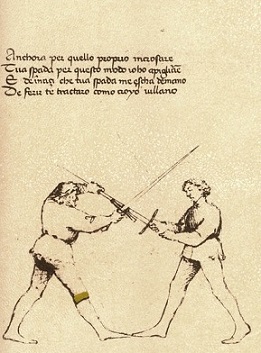 Anchora per quello proprio incrosare
Tua spada per questo modo voio apigliare
E dinançi che tua spada me escha de mano
De ferir te trattaro como croyo villano